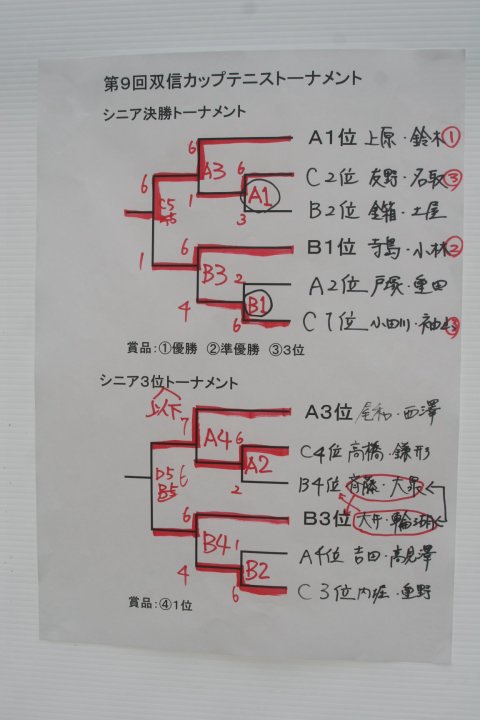 第9回双信カップテニストーナメント
シニア決勝トーナメント
A1位 上原・鈴木 ①
6
A3
6 6
C2位 友野・名取 ③
A1
C5
1 3
B2位 金箱・土屋
1 6
B1位 寺島・小林 ②
B3
2
A2位 戸塚・重田
B1
4 6
C1位 小田川・袖山 ③
賞品:①優勝 ②準優勝 ③3位
シニア3位トーナメント
以下
7
A3位 尾和・西澤
A4
6
C4位 高橋・鎌形
A2
D5 6
B5
2
B4位 斉藤・大泉
6
B3位 大井・輪湖
B4
1
A4位 吉田・高見澤
B2
4 6
C3位 内堀・重野
賞品:④1位